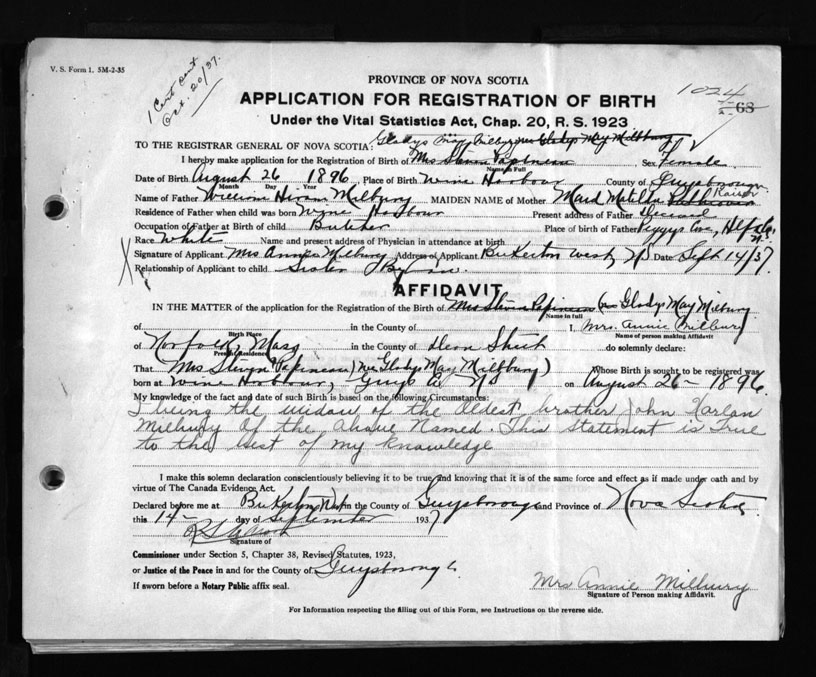 V. S. Form 1. 5M-2-35
1 Cert sent
Oct. 20/37.
PROVINCE OF NOVA SCOTIA
1024
68
APPLICATION FOR REGISTRATION OF BIRTH
Under the Vital Statistics Act, Chap. 20, R. S. 1923
TO THE REGISTRAR GENERAL OF NOVA SCOTIA: Gladys May Milbury Gladys May Milbury
I hereby make application for the Registration of Birth of Mrs Papineau Sex Female
Name in Full
Date of Birth August 26 1896 Place of Birth Wine Harbour County of Guysborough
Month Day Year
Name of Father William Hiram Milbury MAIDEN NAME of Mother Maud Matilda Kaiser
Residence of Father when child was born Wyne Harbour Present address of Father Deceased
Occupation of Father at Birth of child Butcher Place of birth of Father Peggys Cove, Hlfx Co, N.S.
Race White Name and present address of Physician in attendance at birth
Signature of Applicant Mrs Annie Milbury Address of Applicant Bickerton West, NS Date Sept 14/37.
Relationship of Applicant to child Sister By law.
AFFIDAVIT
IN THE MATTER of the application for the Registration of the Birth of Mrs Papineau Gladys May Milbury
Name in full
of in the County of I, Mrs. Annie Milbury
Birth Place
Name of person making Affidavit
of Norfolk, Mass in the County of Street do solemnly declare:
Present Residence
That Mrs Papineau (Nee Gladys May Millbury) Whose Birth is sought to be registered was
born at Wine Harbour, Guys Co NS on August 26 - 1896.
My knowledge of the fact and date of such Birth is based on the following Circumstances:
I being the widow of the oldest brother John Harlan
Milbury of the above Named. This statement is True
to the best of my knowledge
I make this solemn declaration conscientiously believing it to be true, and knowing that it is of the same force and effect as if made under oath and by
virtue of The Canada Evidence Act.
Declared before me at Bickerton West in the County of Guysborough and Province of Nova Scotia
this 14 day of September 1937
Signature of
Commissioner under Section 5, Chapter 38, Revised Statutes, 1923,
or Justice of the Peace in and for the County of Guysborough
If sworn before a Notary Public affix seal.
Mrs Annie Milbury
Signature of Person making Affidavit.
For Information respecting the filling out of this Form, see Instructions on the reverse side.